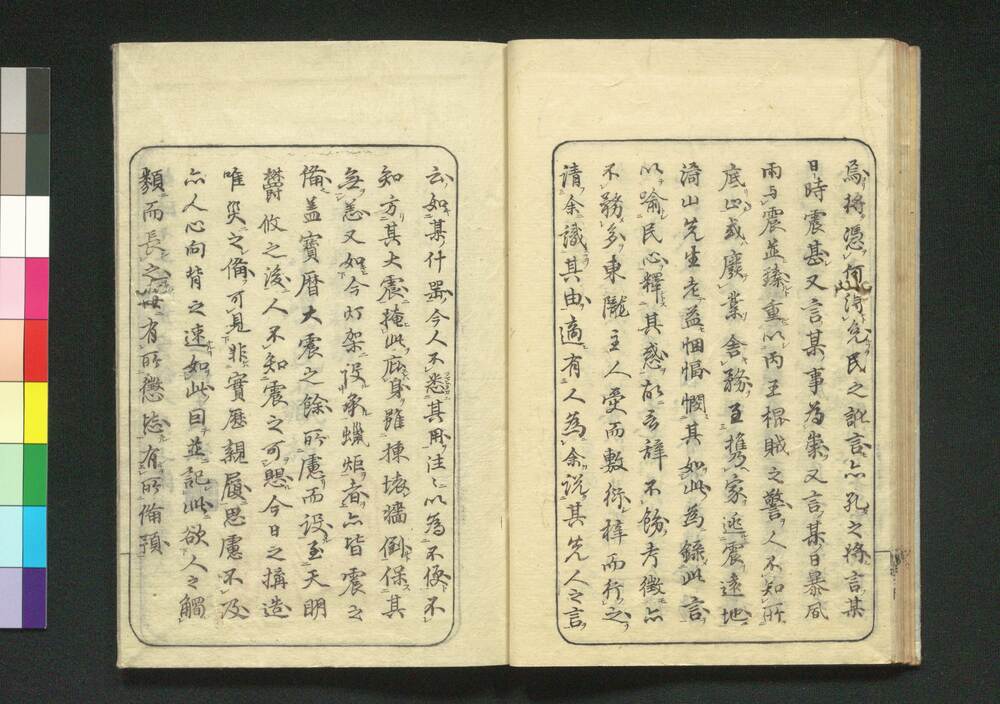 焉将憑何得免民之訛言亦孔之将言某
日時震甚又言某事為祟又言某日暴風
雨与震並臻重以内王棍賊之警人不知所
底止或廢業舎務至携家逃震遠地
漪山先生老益悃愊憫其如此為録此言
以喩民心釋其惑故言辞不飾考徴亦
不務多東隴主人受而敷衍梓而行之
請余識其由適有人為余説其先人之言
云如某什噐今人不悉其用注〻以為不便不
知方其大震掩此庇身雖棟壊墻倒保其
無恙又如今灯架設承蠟炬者亦皆震之
備盖寳暦大震之餘所慮而設至天明
欝攸之後人不知震之可思今日之搆造
唯災之備可見非寳歴親履思慮不及
亦人心向背之速如此曰並記此欲人之觸
類而長之毎有所懲毖有所俻預